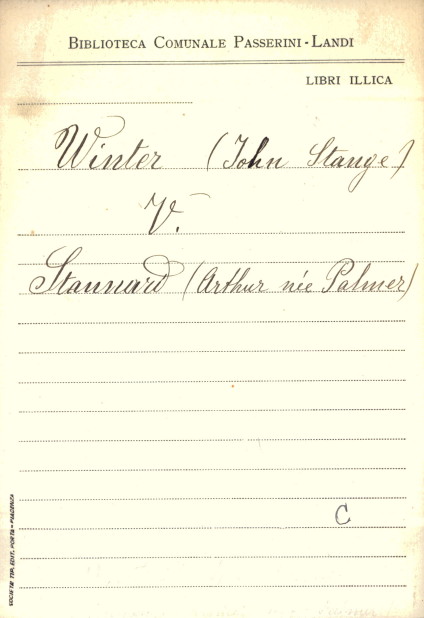 BIBLIOTECA COMUNALE PASSERINI-LANDI
LIBRI ILLICA
Winter (John Stange)
V.
Stannard (Arthur née Palmer)
C
SOCIETÀ TIP. EDIT. PORTA - PIACENZA